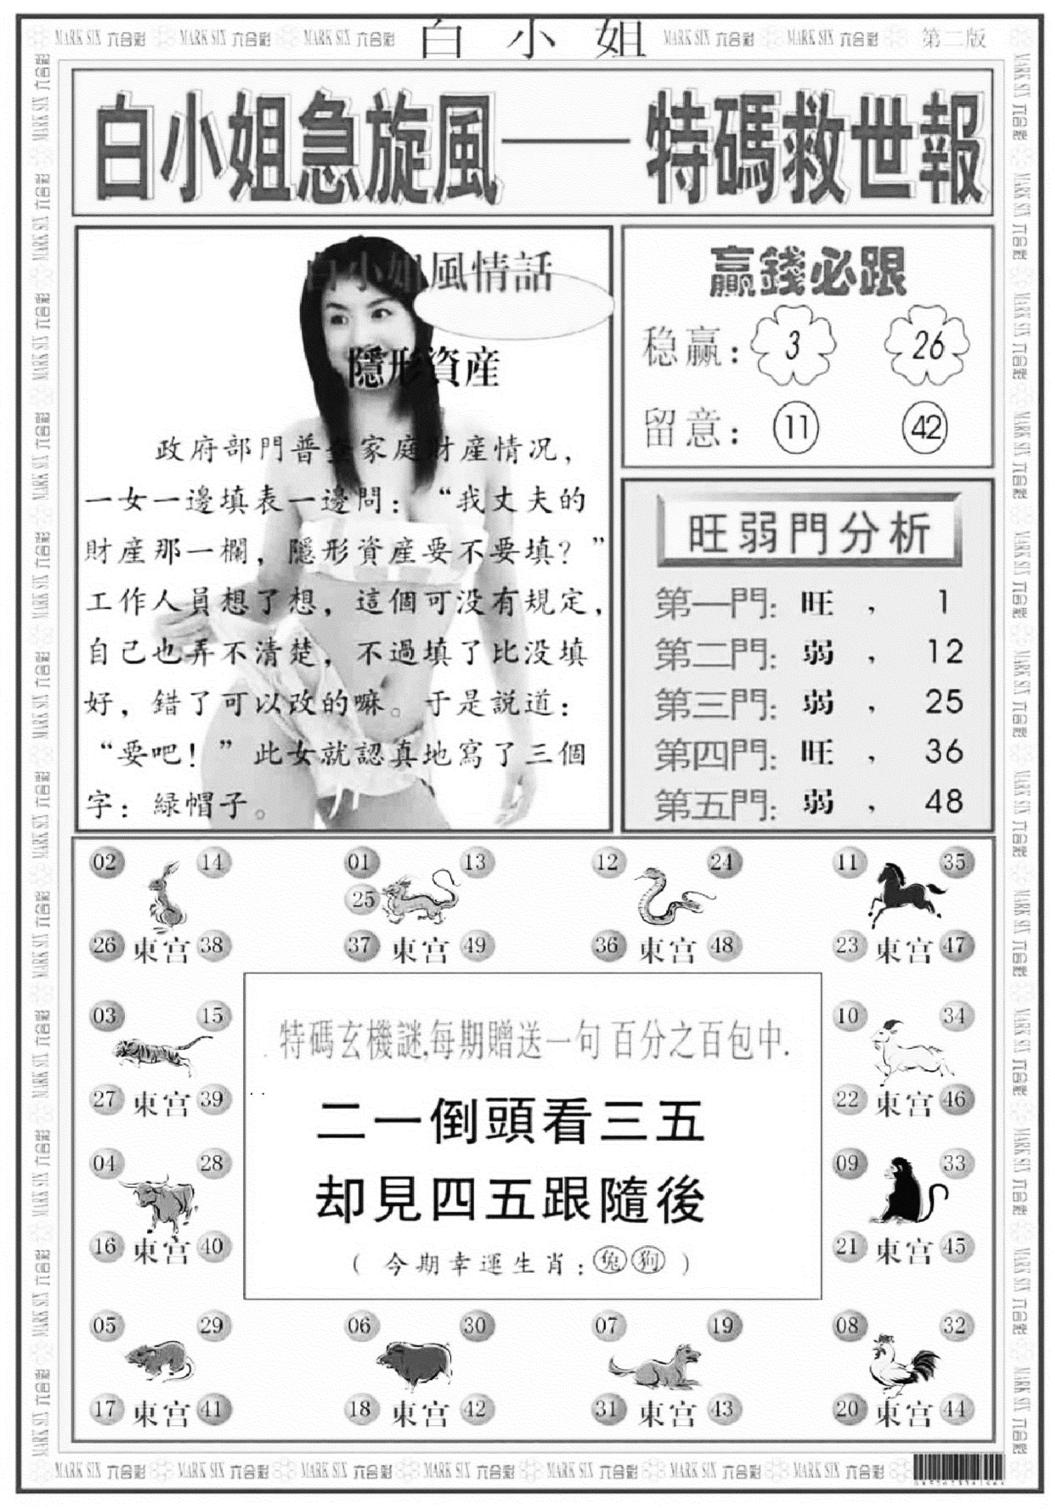 MARK SIX 六合彩 MARK SIX 六合彩 MARK SIX 六合彩 白小姐 MARK SIX 六合彩 MARK SIX 六合彩 第二版
白小姐急旋風——特碼救世報
白小姐風情話
隱形資產
政府部門普查家庭財產情况，
一女一邊填表一邊問：“我丈夫的
財產那一欄，隱形資產要不要填？”
工作人員想了想，這個可没有規定，
自己也弄不清楚，不過填了比没填
好，錯了可以改的嘛。于是説道：
“要吧！”此女就認真地寫了三個
字：緑帽子。
贏錢必跟
稳赢： 3 26
留意： 11 42
旺弱門分析
第一門：旺， 1
第二門：弱， 12
第三門：弱， 25
第四門：旺， 36
第五門：弱， 48
02 14 01 13 12 24 11 35
25
26 東宫 38 37 東宫 49 36 東宫 48 23 東宫 47
03 15 10 34
27 東宫 39 22 東宫 46
04 28 09 33
16 東宫 40 21 東宫 45
特碼玄機謎,每期贈送一句 百分之百包中.
二一倒頭看三五
却見四五跟隨後
（今期幸運生肖：兔狗）
05 29 06 30 07 19 08 32
17 東宫 41 18 東宫 42 31 東宫 43 20 東宫 44
MARK SIX 六合彩 MARK SIX 六合彩 MARK SIX 六合彩 MARK SIX 六合彩 MARK SIX 六合彩 MARK SIX 六合彩 MARK SIX 六合彩